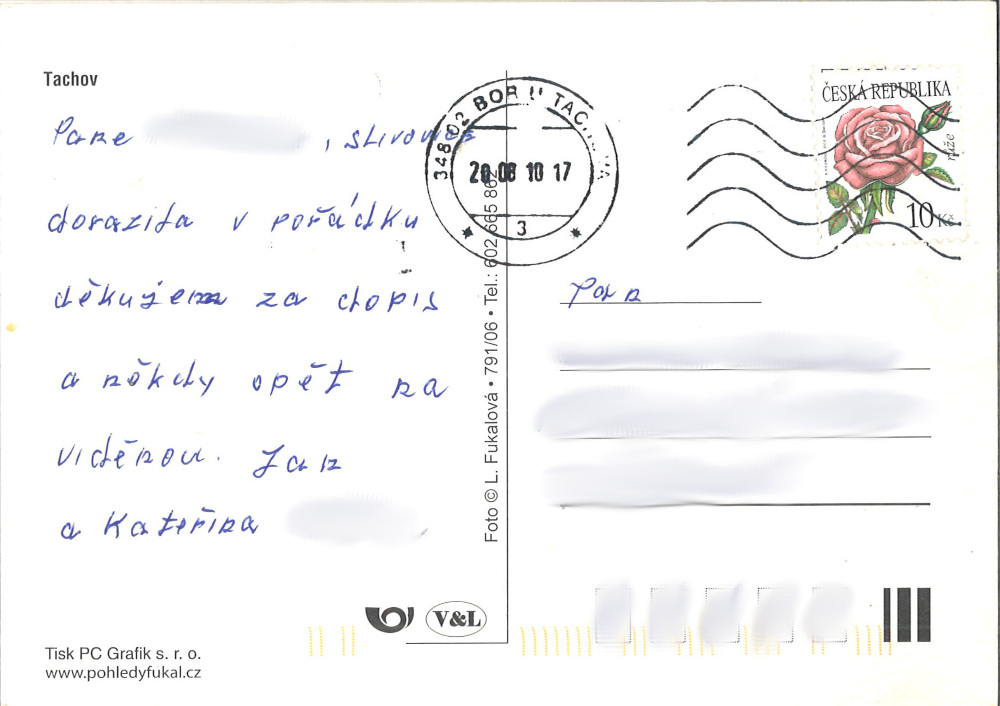 Tachov
Pane , slivovice
dorazila v pořádku
děkujem za dopis
a někdy opět na
viděnou. Jan
a Kateřina
348 02 BOR U TACHOVA
20 08 10 17
3
ČESKÁ REPUBLIKA
růže
10 Kč
Pan
Foto © L. Fukalová • 791/06 • Tel.: 602 665 862
V&L
Tisk PC Grafik s. r. o.
www.pohledyfukal.cz